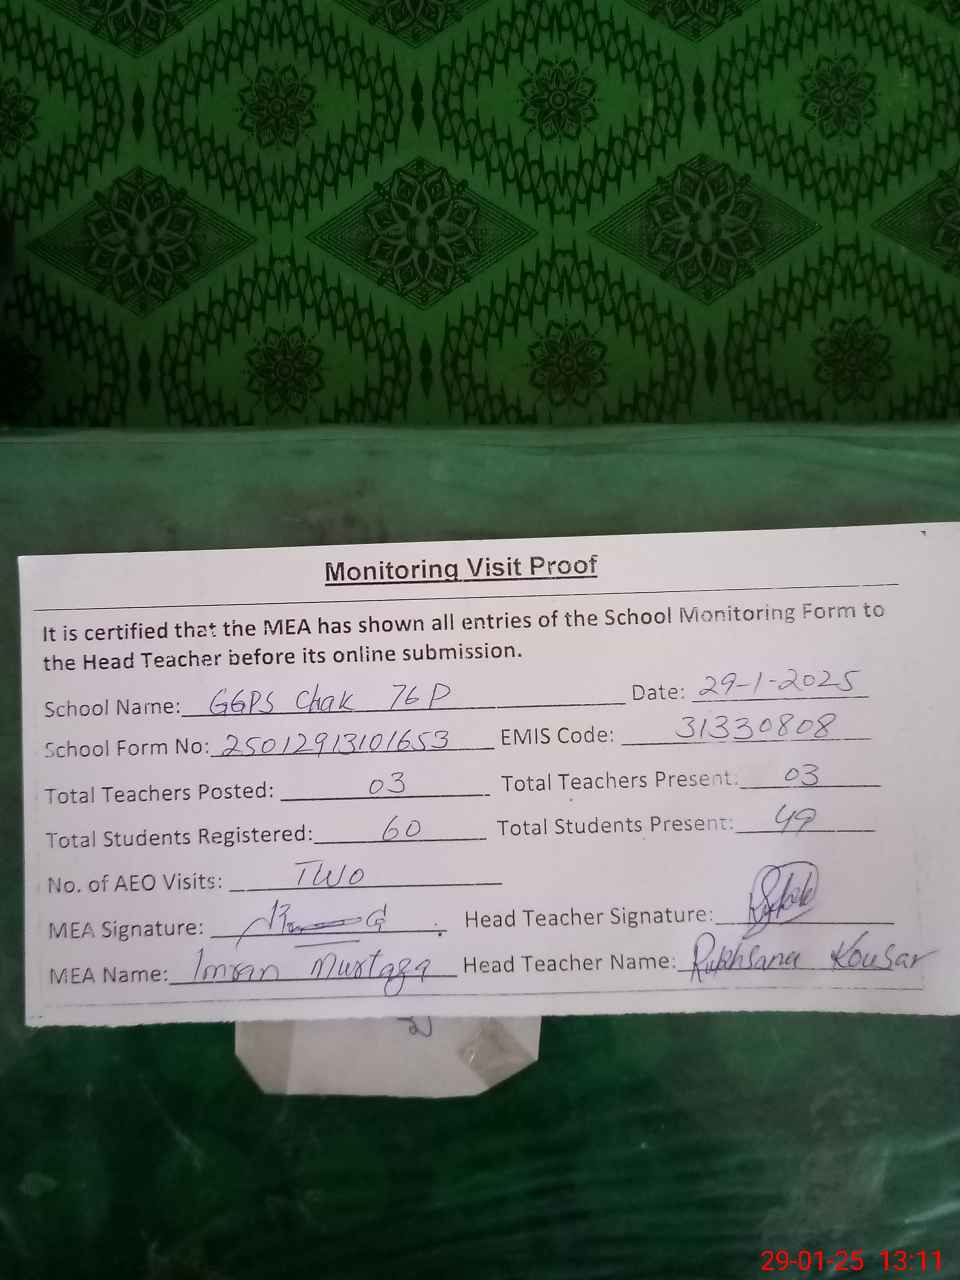 Monitoring Visit Proof
It is certified that the MEA has shown all entries of the School Monitoring Form to
the Head Teacher before its online submission.
School Name: GGPS Chak 76 P Date: 29-1-2025
School Form No: 25012913101653 EMIS Code: 31330808
Total Teachers Posted: 03 Total Teachers Present: 03
Total Students Registered: 60 Total Students Present: 49
No. of AEO Visits: TWO
MEA Signature: Head Teacher Signature:
MEA Name: Imran Murtaza Head Teacher Name: Rukhsana Kousar
29-01-25 13:11